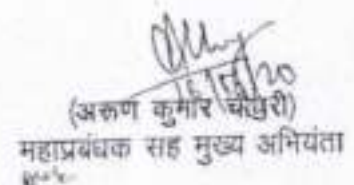 (अरुण कुमार चौधरी)
महाप्रबंधक सह मुख्य अभियंता